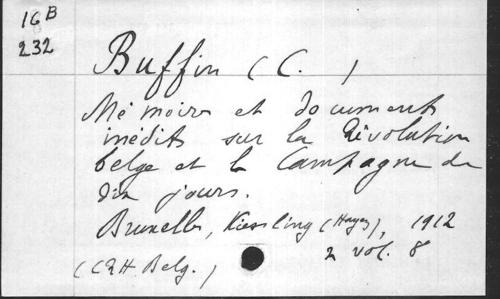 16 B
232
Buffin (C.)
Mémoires et documents
inédits sur la Révolution
belge et la Campagne de
dix jours.
Bruxelles, Kiessling (Hayez), 1912
2 vol. 8
(C.R.H. Belg.)